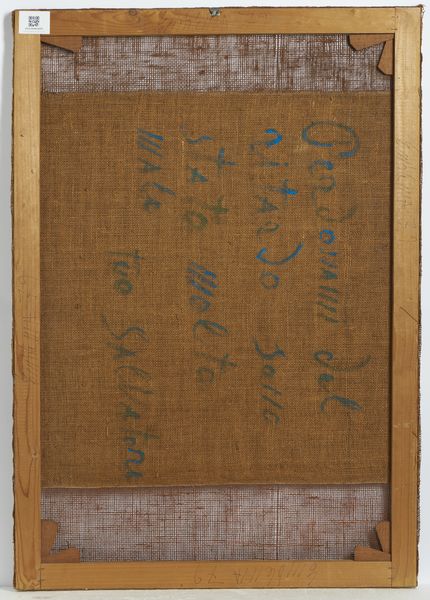 Perdonami del
ritardo sono
stato molto
male tuo Salvatore